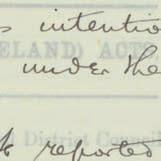 s intention
ELAND) ACTS
under the
District Council
reported